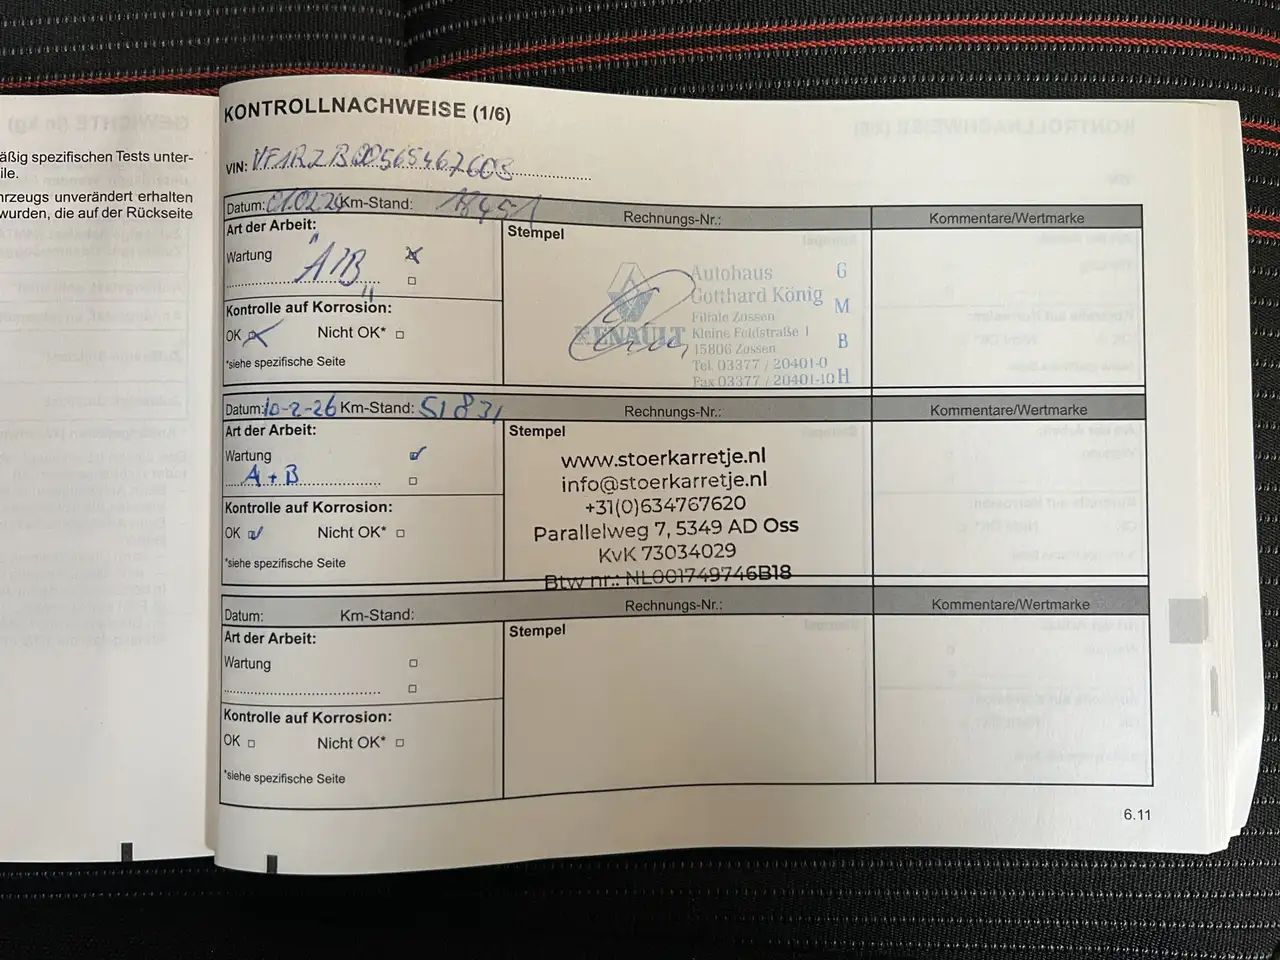 äßig spezifischen Tests unter-
ile.
hrzeugs unverändert erhalten
wurden, die auf der Rückseite
KONTROLLNACHWEISE (1/6)
VIN: VF1RZB00565467603
Datum: 01.02.24 Km-Stand: 18451 Rechnungs-Nr.: Kommentare/Wertmarke
Art der Arbeit: Stempel
Wartung
"A/B"
Kontrolle auf Korrosion:
OK Nicht OK*
*siehe spezifische Seite
RENAULT
Autohaus G
Gotthard König
Filiale Zossen M
Kleine Feldstraße 1
15806 Zossen B
Tel. 03377 / 20401-0
Fax 03377 / 20401-10 H
Datum: 10-2-26 Km-Stand: 51831 Rechnungs-Nr.: Kommentare/Wertmarke
Art der Arbeit: Stempel
Wartung
A + B
Kontrolle auf Korrosion:
OK Nicht OK*
*siehe spezifische Seite
www.stoerkarretje.nl
info@stoerkarretje.nl
+31(0)634767620
Parallelweg 7, 5349 AD Oss
KvK 73034029
Btw nr.: NL001749746B18
Datum: Km-Stand: Rechnungs-Nr.: Kommentare/Wertmarke
Art der Arbeit: Stempel
Wartung
Kontrolle auf Korrosion:
OK Nicht OK*
*siehe spezifische Seite
6.11